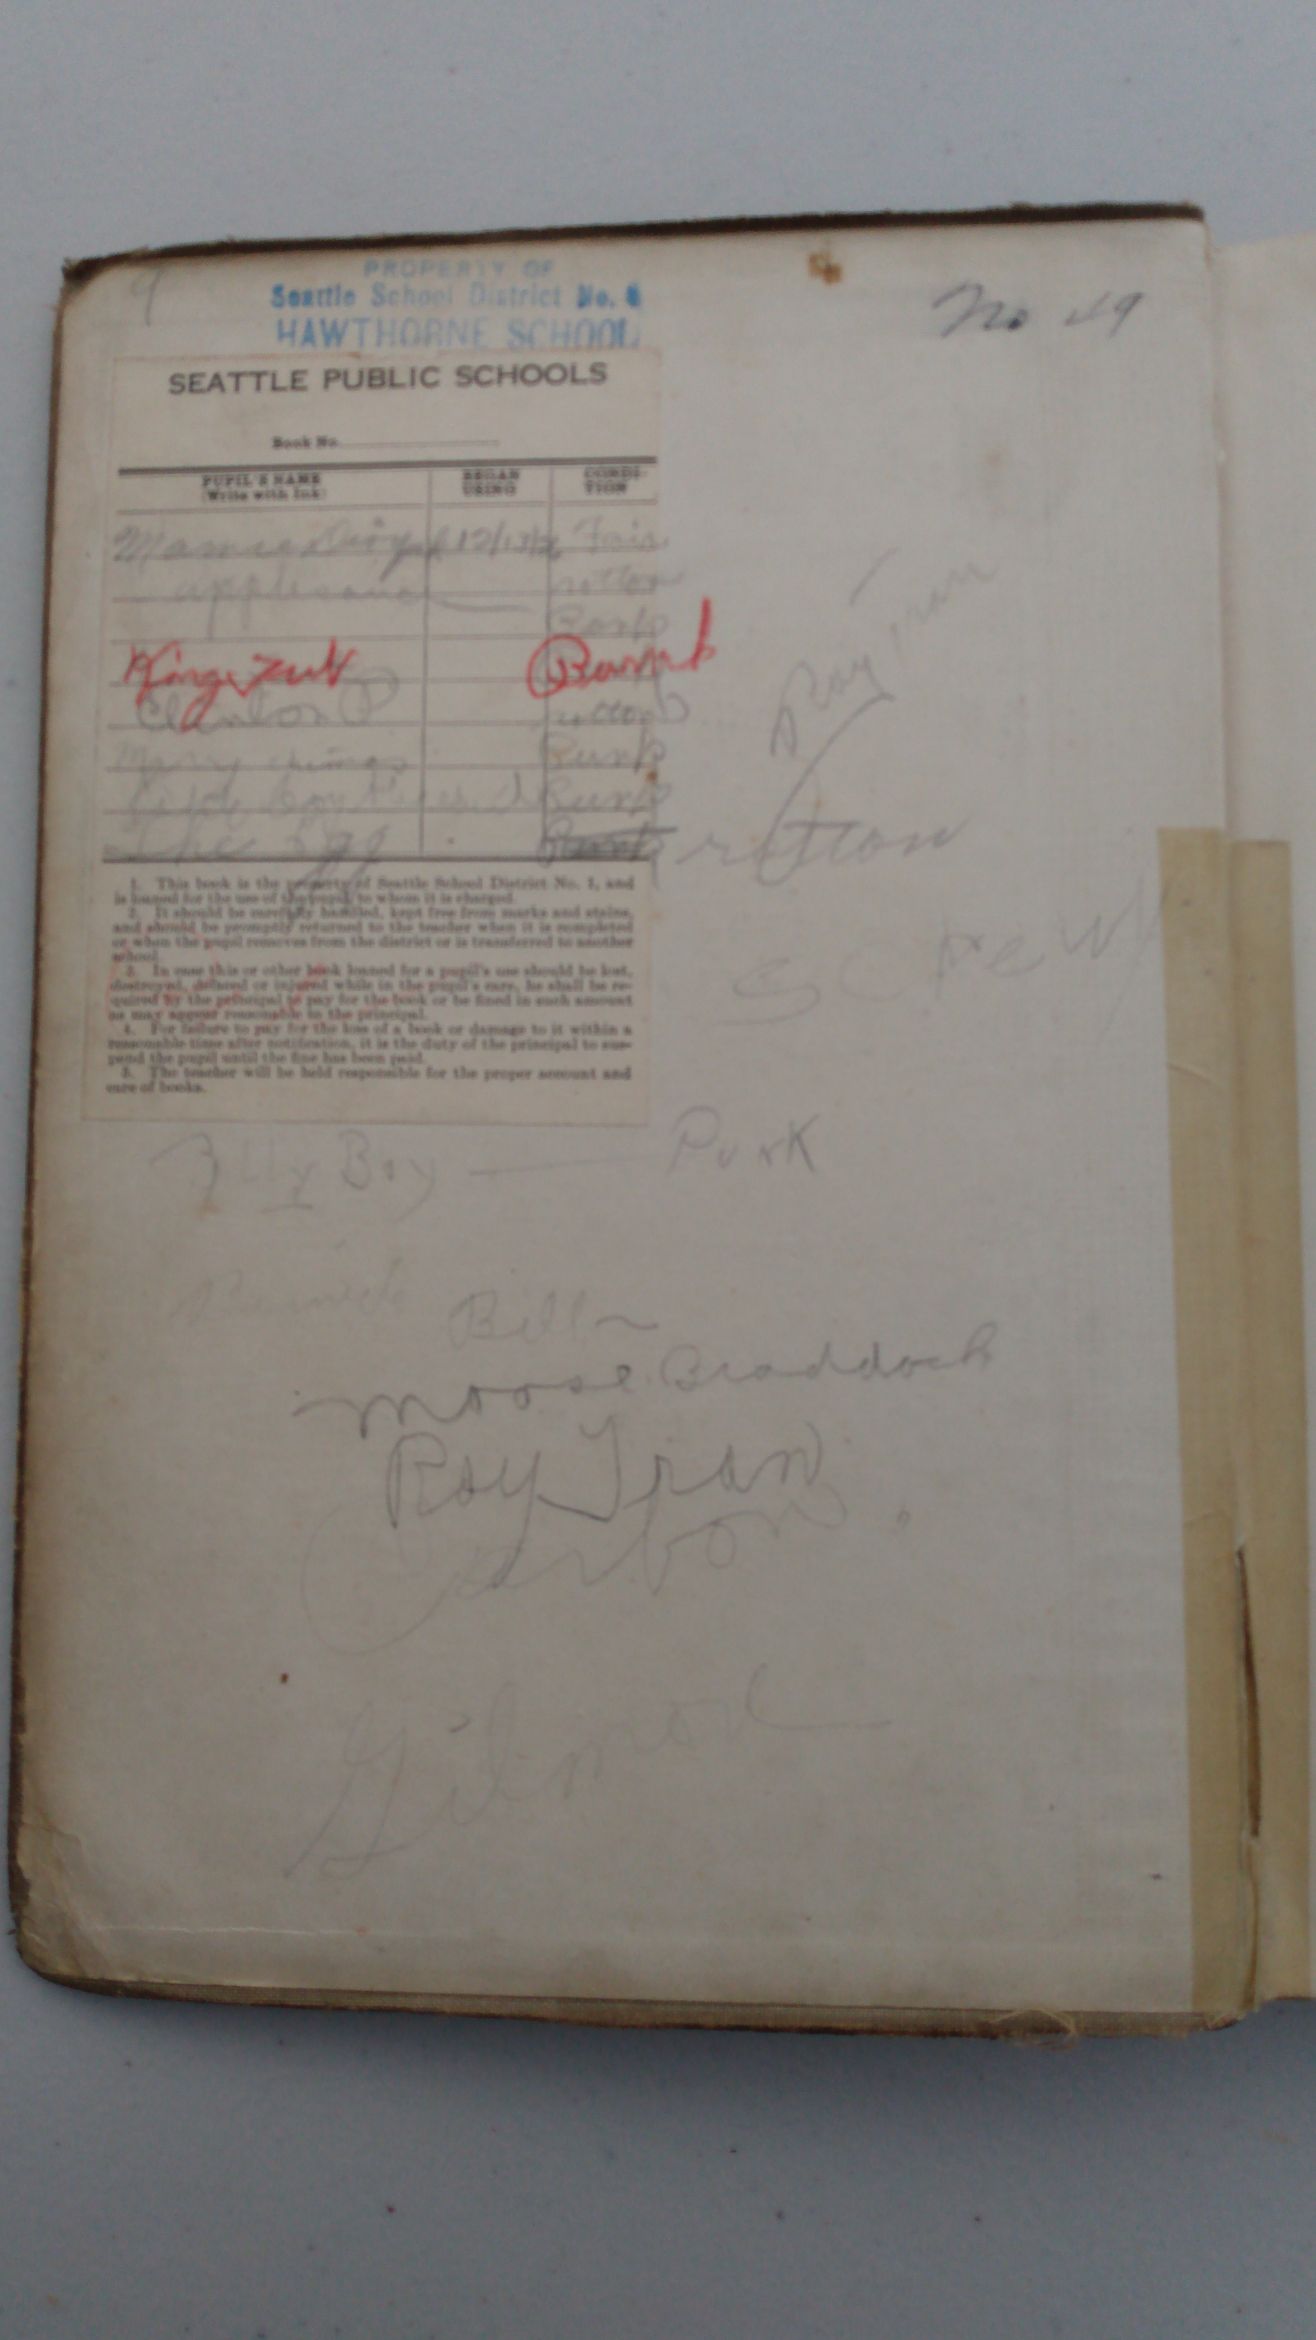 PROPERTY OF
Seattle School District No. 1
HAWTHORNE SCHOOL
No 49
SEATTLE PUBLIC SCHOOLS
Book No.
PUPIL'S NAME
(Write with Ink)
BEGAN
USING
CONDI-
TION
Fair
applesauce rotten
King Tut
rotten
Punk
Punk
The Egg Punk rotten
Roy Tran
screwy
1. This book is the property of Seattle School District No. 1, and
is loaned for the use of the pupil to whom it is charged.
2. It should be carefully handled, kept free from marks and stains,
and should be promptly returned to the teacher when it is completed
or when the pupil removes from the district or is transferred to another
school.
3. In case this or other book loaned for a pupil's use should be lost,
destroyed, defaced or injured while in the pupil's care, he shall be re-
quired by the principal to pay for the book or be fined in such amount
as may appear reasonable to the principal.
4. For failure to pay for the loss of a book or damage to it within a
reasonable time after notification, it is the duty of the principal to sus-
pend the pupil until the fine has been paid.
5. The teacher will be held responsible for the proper account and
care of books.
Boy Punk
Bill
Moose Braddock
Roy Tran
Carbon